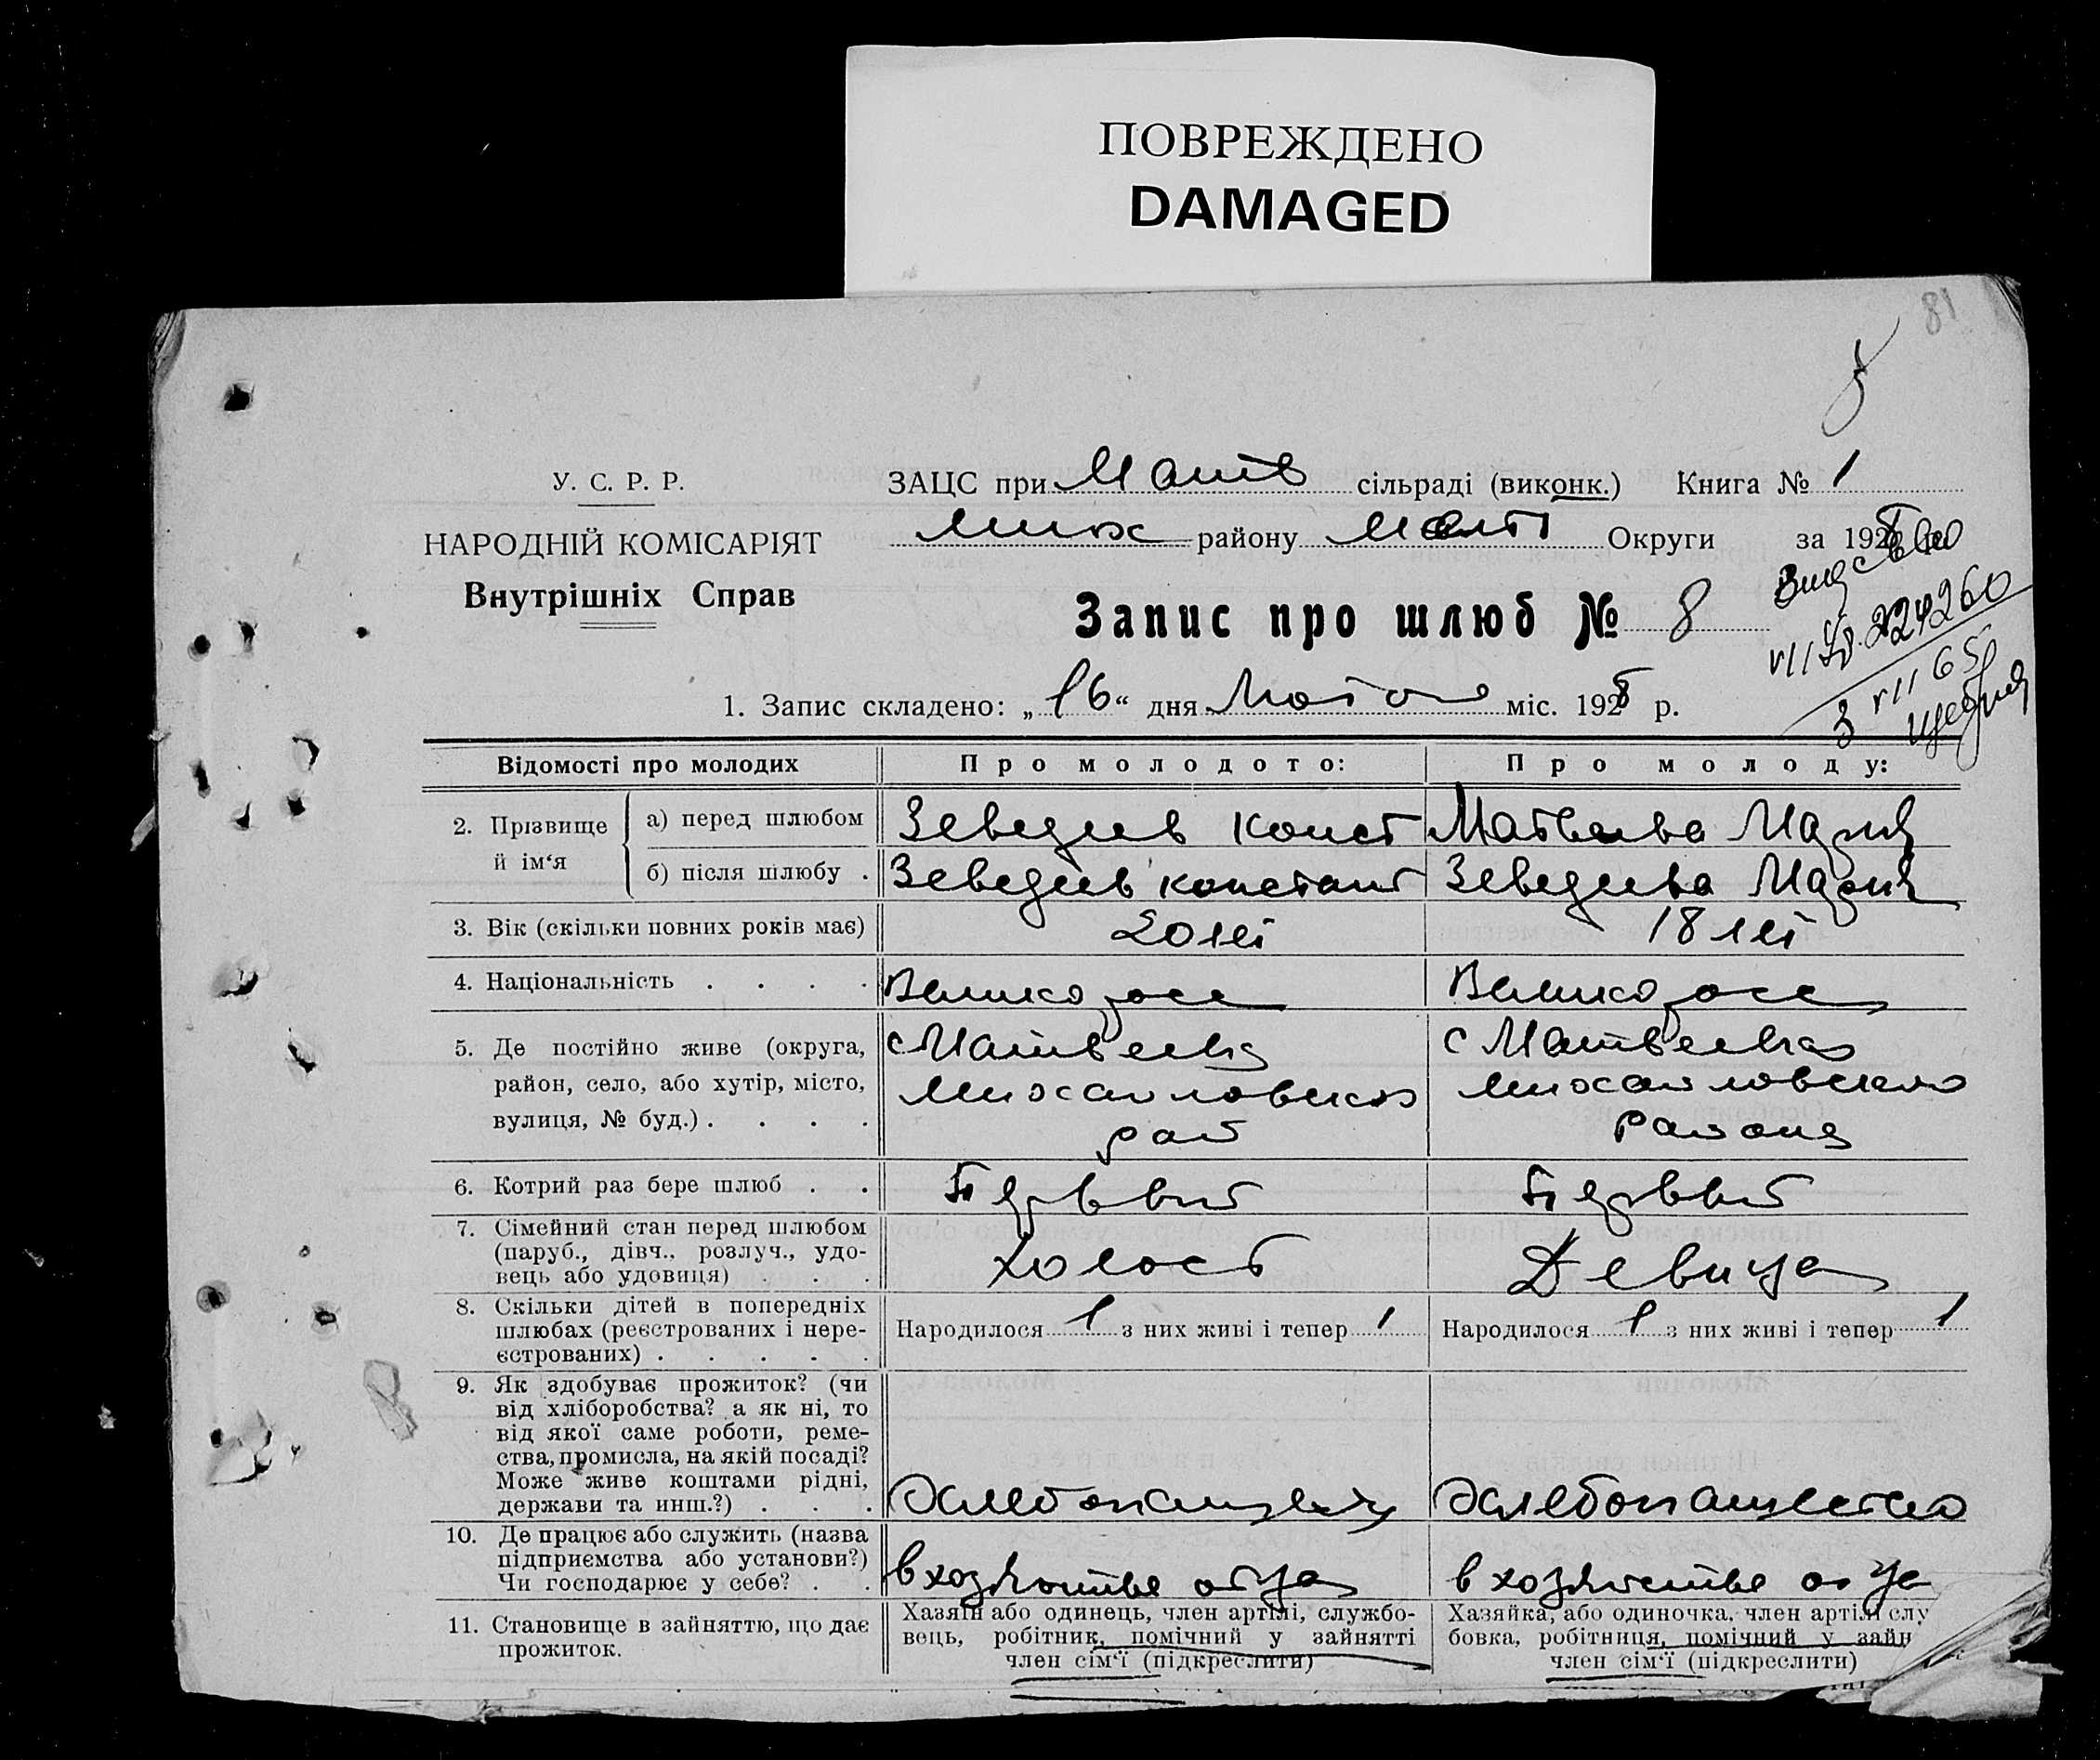 ПОВРЕЖДЕНО
DAMAGED
81
8
У. С. Р. Р.
НАРОДНІЙ КОМІСАРІЯТ
Внутрішніх Справ
ЗАЦС при Матв сільраді (виконк.) Книга № 1
Мих району Меліт Округи за 1928
Запис про шлюб № 8
1. Запис складено: „16“ дня міс. 1928 р.
Відомості про молодих Про молодото: Про молоду:
2. Прізвище й ім‘я
а) перед шлюбом Зеведеев Конст Матвеева Мария
б) після шлюбу . Зеведеев Констант Зеведеева Мария
3. Вік (скільки повних років має) 20 лет 18 лет
4. Національність . . . . Великоросс Великоросс
5. Де постійно живе (округа, с Матвеевка с Матвеевка
район, село, або хутір, місто, Михайловского Михайловского
вулиця, № буд.) . . . . рай Района
6. Котрий раз бере шлюб . . Первый Первый
7. Сімейний стан перед шлюбом
(паруб., дівч., розлуч., удо-
вець або удовиця) . . . Холост Девица
8. Скільки дітей в попередніх
шлюбах (реєстрованих і нере-
єстрованих) . . . . .
Народилося 1 з них живі і тепер 1 Народилося 1 з них живі і тепер 1
9. Як здобуває прожиток? (чи
від хліборобства? а як ні, то
від якої саме роботи, реме-
ства, промисла, на якій посаді?
Може живе коштами рідні,
держави та инш.?) . . . Хлебопашество Хлебопашество
10. Де працює або служить (назва
підприємства або установи?)
Чи господарює у себе? . . в хозяйстве отца в хозяйстве отца
11. Становище в зайняттю, що дає
прожиток.
Хазяїн або одинець, член артілі, службо-
вець, робітник, помічний у зайнятті
член сім‘ї (підкреслити)
Хазяйка, або одиночка, член артілі слу
бовка, робітниця, помічний у зайн
член сім‘ї (підкреслити)